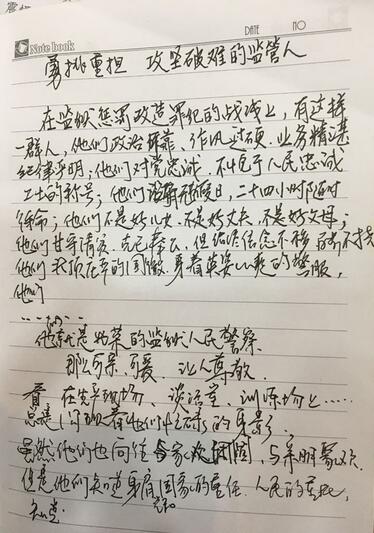 Note book
DATE NO
勇挑重担 攻坚破难的监管人
在监狱惩罚改造罪犯的战线上，有这样
一群人，他们政治可靠、作风过硬、业务精湛
纪律严明；他们对党忠诚、不自于人民忠诚
卫士的称号；他们没有假日，二十四小时随时
待命；他们不是好儿女、不是好丈夫、不是好父母；
他们甘守清贫、克己奉公、但信念不移
他们头顶庄严的国徽、身着英姿的警服，
他们
他就是光荣的监狱人民警察
那么可亲、可爱、让人尊敬
看 在生产现场、谈话室、训练场上……
总是闪现着他们忙碌的身影
虽然他们也向往与家人团圆、与亲朋聚欢
但是他们知道身肩国家的重任、人民的重托，
知道